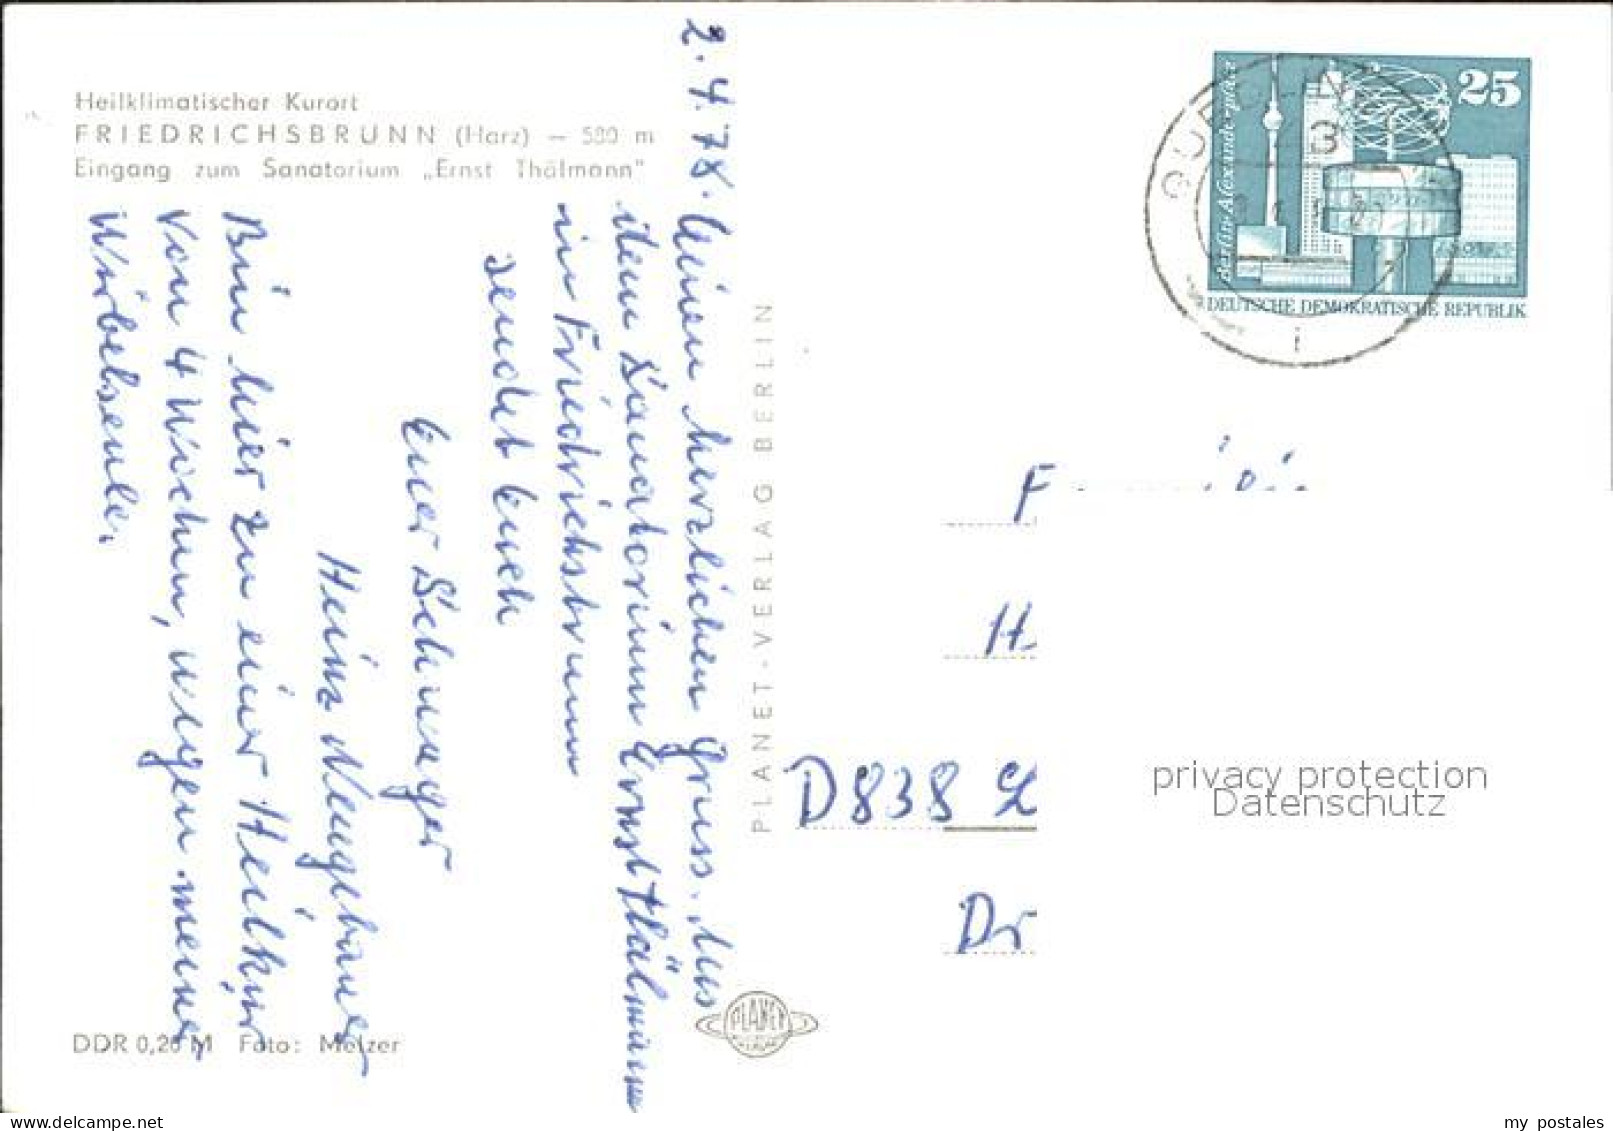 Heilklimatischer Kurort
FRIEDRICHSBRUNN (Harz) – 580 m
Eingang zum Sanatorium „Ernst Thälmann"
2.4.78.
Meinen herzlichen Gruss. Aus
dem Sanatorium Ernst Thälmann
in Friedrichsbrunn
sendet Euch
Euer Schwager
Heinz Neugebauer
Bin hier zu einer Heilkur
von 4 Wochen, wegen meiner
Wirbelsenle.
DDR 0,20 M Foto: Melzer
PLANET-VERLAG BERLIN
PLANET
VERLAG
Berlin-Alexanderplatz
25
DEUTSCHE DEMOKRATISCHE REPUBLIK
QUEDLIN
43
F
H.
D838
Dr
privacy protection
Datenschutz
www.delcampe.net
my_postales